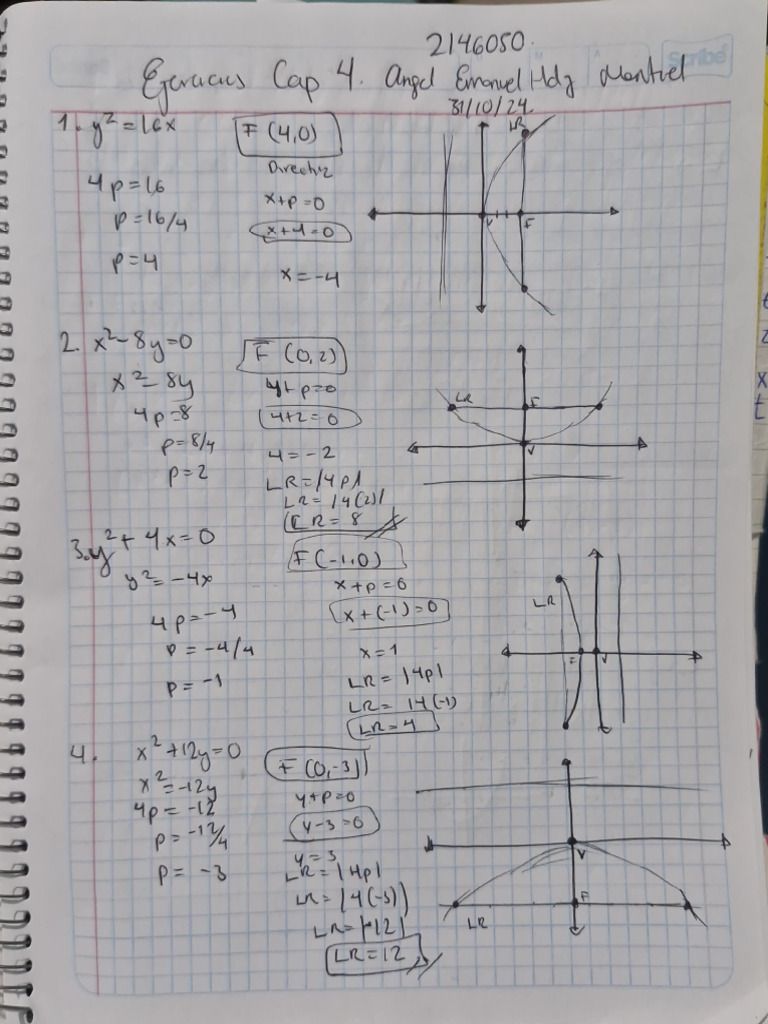 2146050.
Scribe
Ejercicios Cap 4. Angel Emanuel Hdz Montiel
31/10/24
1. y² = 16x
F (4,0)
Directriz
4p = 16
x+p=0
p = 16/4
x+4=0
p = 4
x = -4
LR
V
F
2. x² - 8y = 0
F (0,2)
x² - 8y
y+p=0
4p=8
y+2=0
p=8/4
y = -2
p=2
LR = |4p|
LR = |4(2)|
LR = 8
LR
F
V
3. y² + 4x = 0
F (-1,0)
y² = -4x
x+p=0
4p = -4
x+(-1)=0
p = -4/4
x=1
p = -1
LR = |4p|
LR = |4(-1)
LR = 4
LR
F
V
4. x² + 12y = 0
F (0,-3)
x² = -12y
y+p=0
4p = -12
y-3=0
p = -12/4
y=3
p = -3
LR = |4p|
LR = |4(-3)|
LR = |-12|
LR = 12
V
F
LR